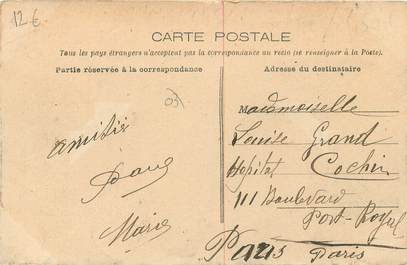 12€
CARTE POSTALE
Tous les pays étrangers n'acceptent pas la correspondance au recto (se renseigner à la Poste).
Partie réservée à la correspondance
Adresse du destinataire
03
amitié
Marie
Mademoiselle
Louise Grand
Hopital Cochin
111 Boulevard
Port-Royal
Paris Paris